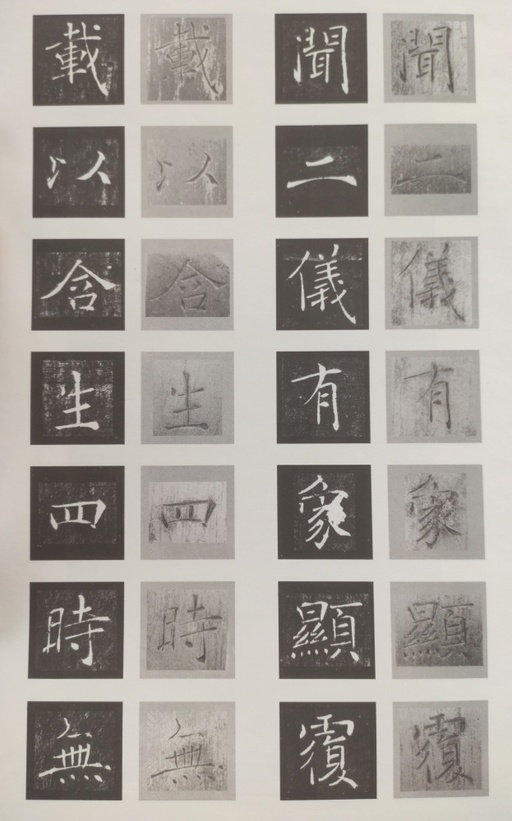 聞二儀有象顯覆
聞二儀有象顯覆
載以含生四時無
載以含生四時無